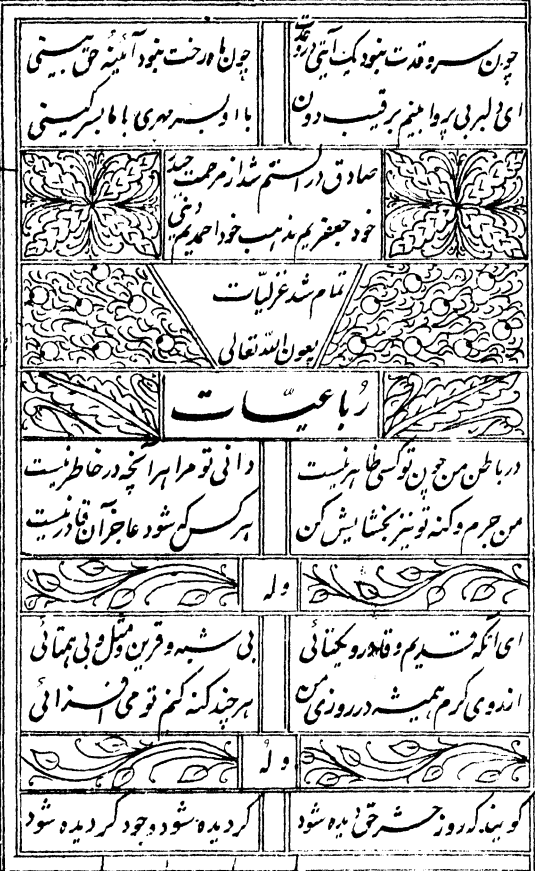 چون سرو قدت نبود یک آیتی در وحدت
چون ماه رخت نبود آئینهٔ حق بینی
ای دلبر بی پروا بینم برقیب دون
با او بسر مهری با ما بسر کینی
صادق در الستم شد از مرحمت
خود جعفریم مذهب خود احمدیم دینی
تمام شد غزلیّات
بعون الله تعالی
رُباعیّات
در باطن من چون تو کسی ظاهر نیست
دانی تو مرا هر آنچه در خاطر نیست
من جرم و کنه تو نیز بخشایش کن
هر کس که شود عاجز آن قادر نیست
وله
ای آنکه قدیم و قادر و یکتائی
بی شبه و قرین و مثل و بی همتائی
از روی کرم همیشه در روزی من
هر چند کنه کنم تو می افزائی
وله
گویند که روز حشر حق دیده شود
گر دیده شود وجود گردیده شود